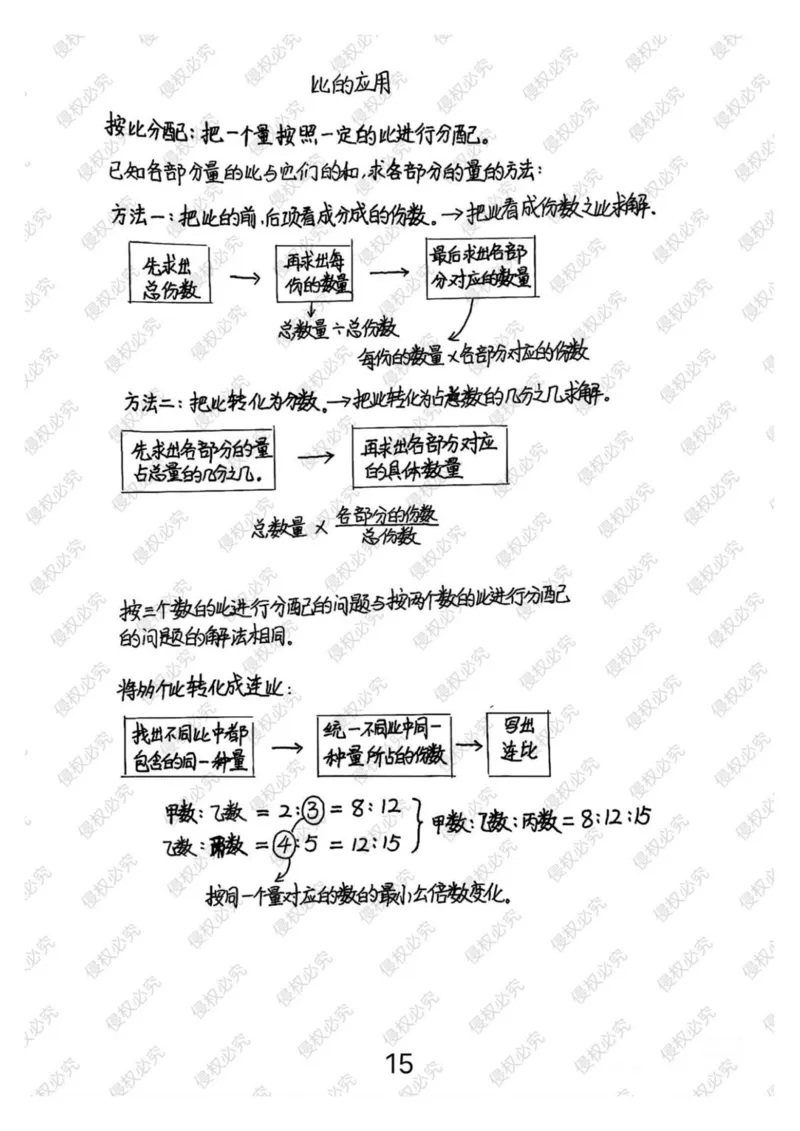 比的应用
按比分配:把一个量按照一定的比进行分配。
已知各部分量的比与它们的和,求各部分的量的方法:
方法一:把比的前、后项看成分成的份数。→把比看成份数之比求解.
先求出
总份数
→
再求出每
份的数量
→
最后求出各部
分对应的数量
总数量÷总份数
每份的数量×各部分对应的份数
方法二:把比转化为分数。→把比转化为占总数的几分之几求解。
先求出各部分的量
占总量的几分之几。
→
再求出各部分对应
的具体数量
总数量×各部分的份数/总份数
按三个数的比进行分配的问题与按两个数的比进行分配
的问题的解法相同。
将多个比转化成连比:
找出不同比中都
包含的同一种量
→
统一不同比中同一
种量所占的份数
→
写出
连比
甲数:乙数=2:③=8:12
乙数:丙数=④:5=12:15
甲数:乙数:丙数=8:12:15
按同一个量对应的数的最小公倍数变化。
15
侵权必究